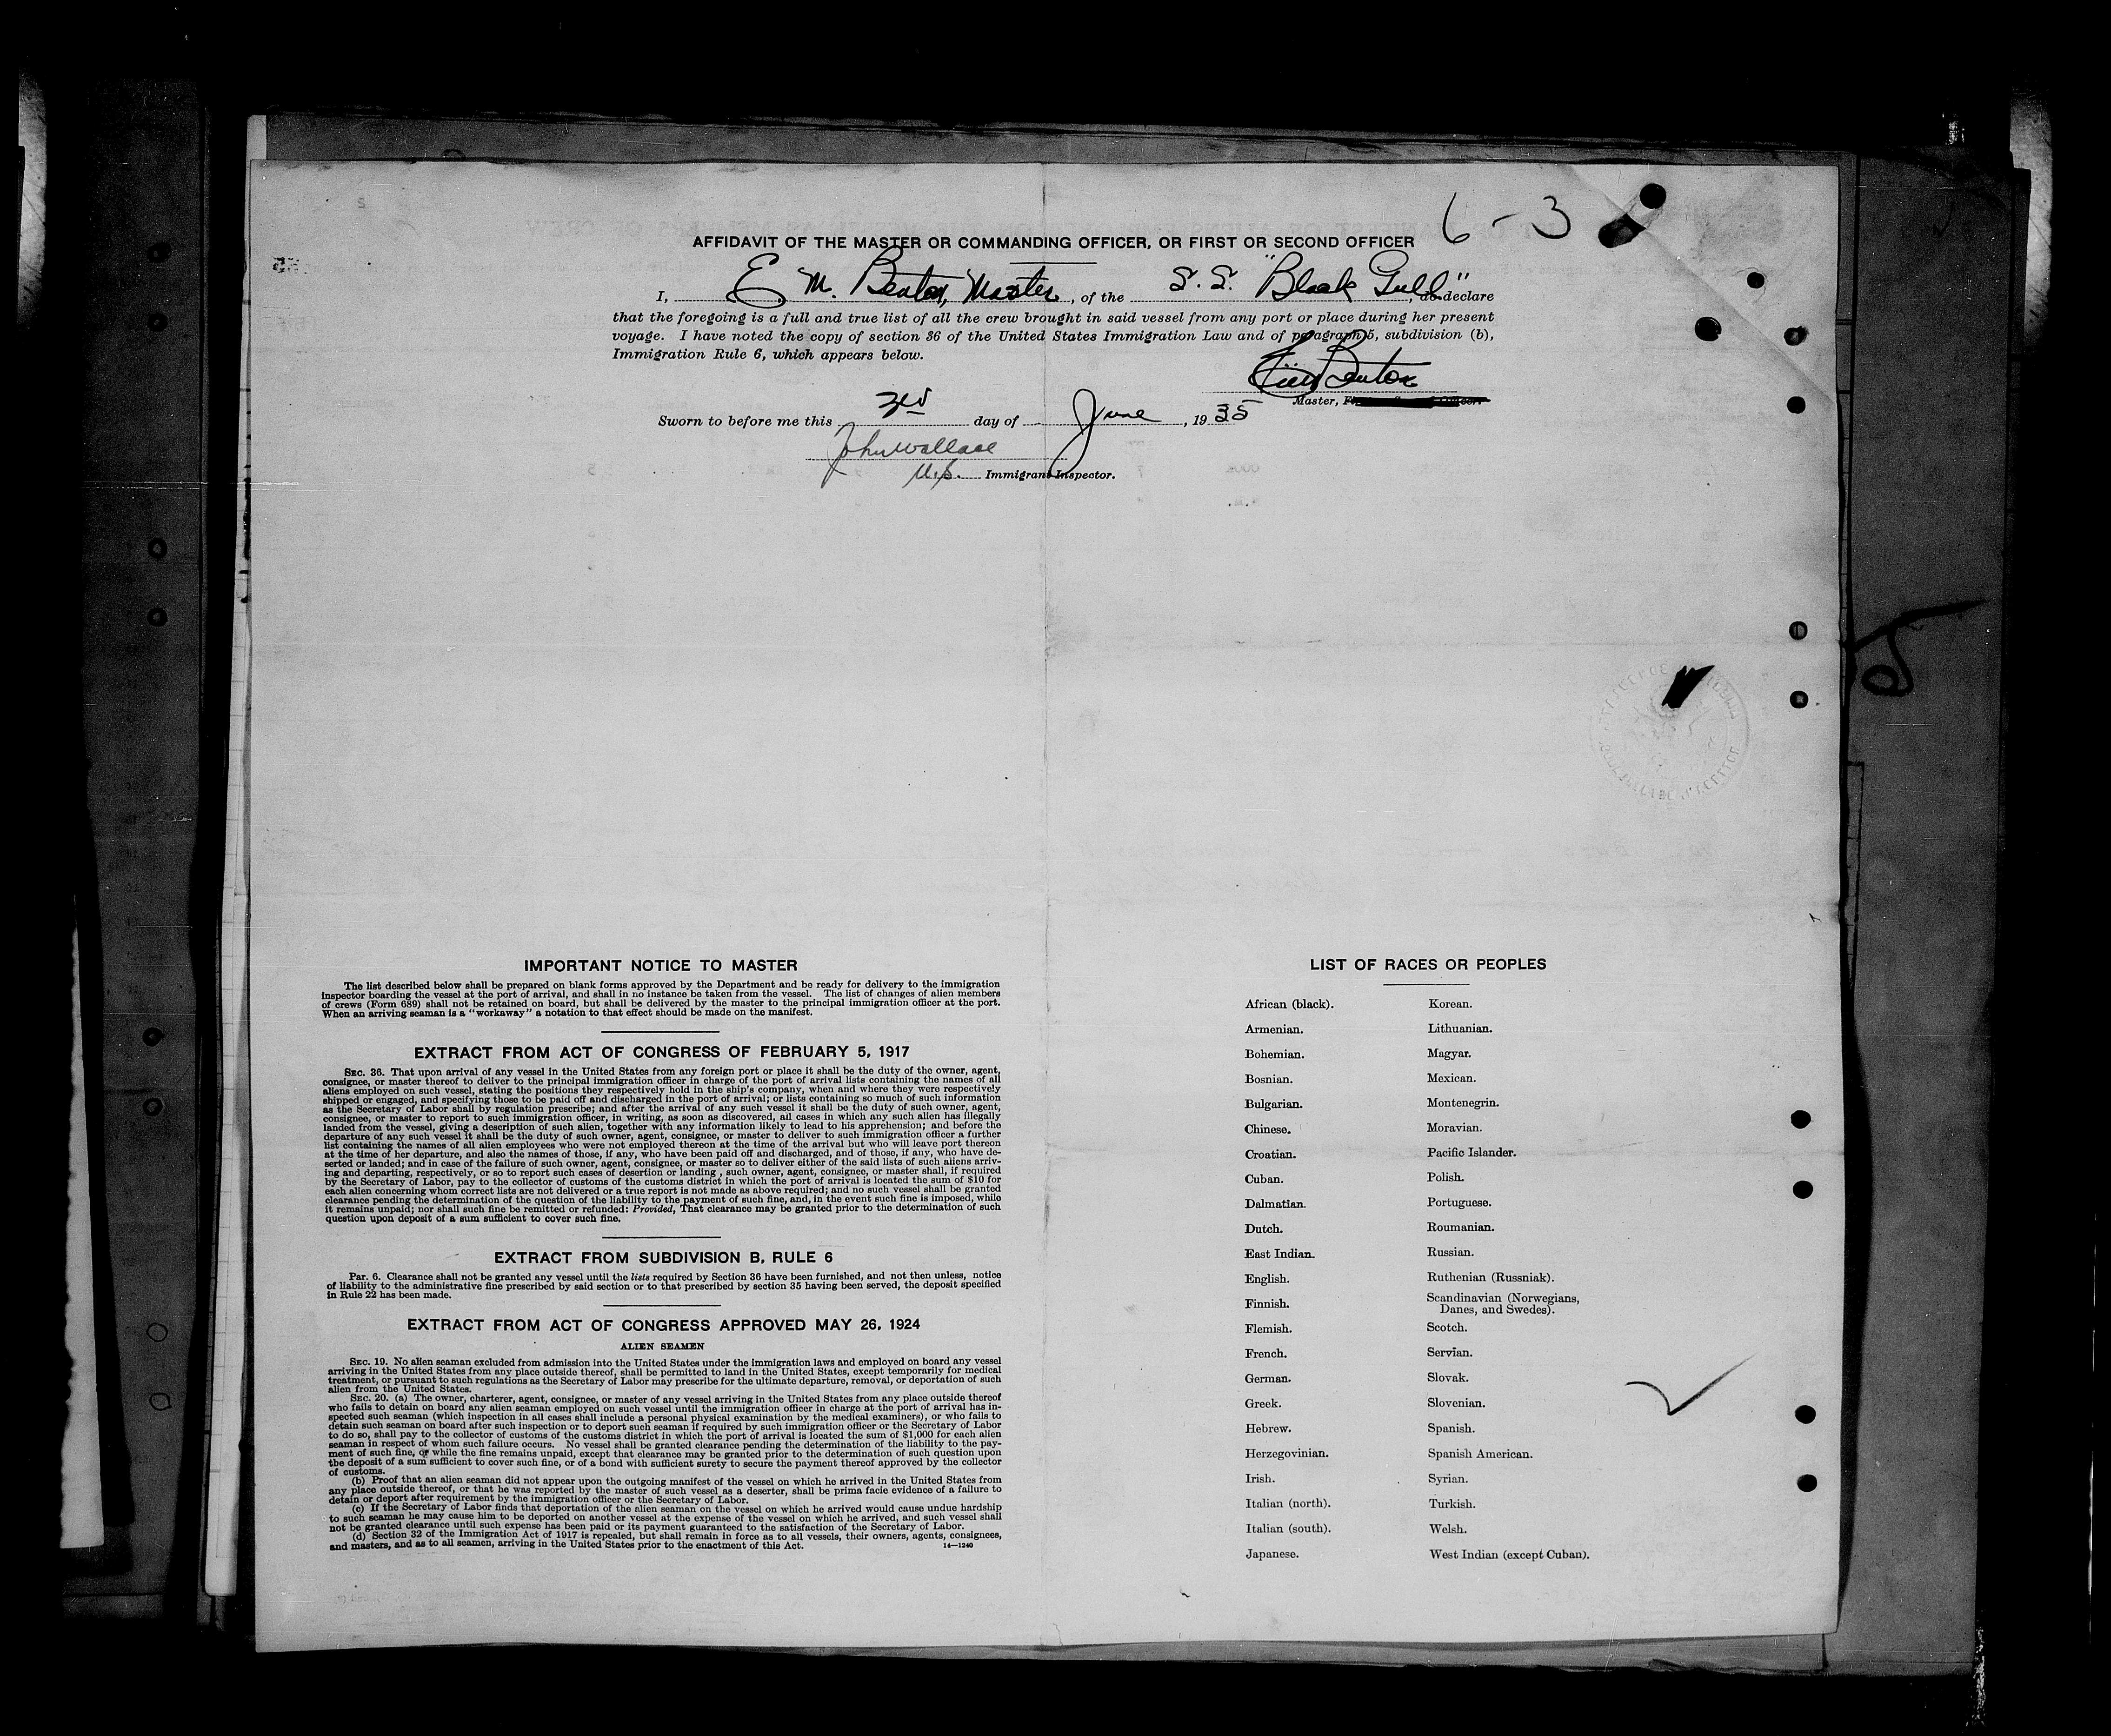 6-3
AFFIDAVIT OF THE MASTER OR COMMANDING OFFICER, OR FIRST OR SECOND OFFICER
I, E. M. Benton, Master, of the S. S. "Black Gull", do declare
that the foregoing is a full and true list of all the crew brought in said vessel from any port or place during her present
voyage. I have noted the copy of section 36 of the United States Immigration Law and of paragraph 5, subdivision (b),
Immigration Rule 6, which appears below.
Benton
Master,
Sworn to before me this 3rd day of June, 1935
John Wallace
U.S. Immigrant Inspector.
IMPORTANT NOTICE TO MASTER
The list described below shall be prepared on blank forms approved by the Department and be ready for delivery to the immigration
inspector boarding the vessel at the port of arrival, and shall in no instance be taken from the vessel. The list of changes of alien members
of crews (Form 689) shall not be retained on board, but shall be delivered by the master to the principal immigration officer at the port.
When an arriving seaman is a "workaway" a notation to that effect should be made on the manifest.
EXTRACT FROM ACT OF CONGRESS OF FEBRUARY 5, 1917
SEC. 36. That upon arrival of any vessel in the United States from any foreign port or place it shall be the duty of the owner, agent,
consignee, or master thereof to deliver to the principal immigration officer in charge of the port of arrival lists containing the names of all
aliens employed on such vessel, stating the positions they respectively hold in the ship's company, when and where they were respectively
shipped or engaged, and specifying those to be paid off and discharged in the port of arrival; or lists containing so much of such information
as the Secretary of Labor shall by regulation prescribe; and after the arrival of any such vessel it shall be the duty of such owner, agent,
consignee, or master to report to such immigration officer, in writing, as soon as discovered, all cases in which any such alien has illegally
landed from the vessel, giving a description of such alien, together with any information likely to lead to his apprehension; and before the
departure of any such vessel it shall be the duty of such owner, agent, consignee, or master to deliver to such immigration officer a further
list containing the names of all alien employees who were not employed thereon at the time of the arrival but who will leave port thereon
at the time of her departure, and also the names of those, if any, who have been paid off and discharged, and of those, if any, who have de-
serted or landed; and in case of the failure of such owner, agent, consignee, or master so to deliver either of the said lists of such aliens arriv-
ing and departing, respectively, or so to report such cases of desertion or landing , such owner, agent, consignee, or master shall, if required
by the Secretary of Labor, pay to the collector of customs of the customs district in which the port of arrival is located the sum of $10 for
each alien concerning whom correct lists are not delivered or a true report is not made as above required; and no such vessel shall be granted
clearance pending the determination of the question of the liability to the payment of such fine, and, in the event such fine is imposed, while
it remains unpaid; nor shall such fine be remitted or refunded: Provided, That clearance may be granted prior to the determination of such
question upon deposit of a sum sufficient to cover such fine.
EXTRACT FROM SUBDIVISION B, RULE 6
Par. 6. Clearance shall not be granted any vessel until the lists required by Section 36 have been furnished, and not then unless, notice
of liability to the administrative fine prescribed by said section or to that prescribed by section 35 having been served, the deposit specified
in Rule 22 has been made.
EXTRACT FROM ACT OF CONGRESS APPROVED MAY 26, 1924
ALIEN SEAMEN
SEC. 19. No alien seaman excluded from admission into the United States under the immigration laws and employed on board any vessel
arriving in the United States from any place outside thereof, shall be permitted to land in the United States, except temporarily for medical
treatment, or pursuant to such regulations as the Secretary of Labor may prescribe for the ultimate departure, removal, or deportation of such
alien from the United States.
SEC. 20. (a) The owner, charterer, agent, consignee, or master of any vessel arriving in the United States from any place outside thereof
who fails to detain on board any alien seaman employed on such vessel until the immigration officer in charge at the port of arrival has in-
spected such seaman (which inspection in all cases shall include a personal physical examination by the medical examiners), or who fails to
detain such seaman on board after such inspection or to deport such seaman if required by such immigration officer or the Secretary of Labor
to do so, shall pay to the collector of customs of the customs district in which the port of arrival is located the sum of $1,000 for each alien
seaman in respect of whom such failure occurs. No vessel shall be granted clearance pending the determination of the liability to the pay-
ment of such fine, or while the fine remains unpaid, except that clearance may be granted prior to the determination of such question upon
the deposit of a sum sufficient to cover such fine, or of a bond with sufficient surety to secure the payment thereof approved by the collector
of customs.
(b) Proof that an alien seaman did not appear upon the outgoing manifest of the vessel on which he arrived in the United States from
any place outside thereof, or that he was reported by the master of such vessel as a deserter, shall be prima facie evidence of a failure to
detain or deport after requirement by the immigration officer or the Secretary of Labor.
(c) If the Secretary of Labor finds that deportation of the alien seaman on the vessel on which he arrived would cause undue hardship
to such seaman he may cause him to be deported on another vessel at the expense of the vessel on which he arrived, and such vessel shall
not be granted clearance until such expense has been paid or its payment guaranteed to the satisfaction of the Secretary of Labor.
(d) Section 32 of the Immigration Act of 1917 is repealed, but shall remain in force as to all vessels, their owners, agents, consignees,
and masters, and as to all seamen, arriving in the United States prior to the enactment of this Act.
14—1240
LIST OF RACES OR PEOPLES
African (black).
Armenian.
Bohemian.
Bosnian.
Bulgarian.
Chinese.
Croatian.
Cuban.
Dalmatian.
Dutch.
East Indian.
English.
Finnish.
Flemish.
French.
German.
Greek.
Hebrew.
Herzegovinian.
Irish.
Italian (north).
Italian (south).
Japanese.
Korean.
Lithuanian.
Magyar.
Mexican.
Montenegrin.
Moravian.
Pacific Islander.
Polish.
Portuguese.
Roumanian.
Russian.
Ruthenian (Russniak).
Scandinavian (Norwegians,
Danes, and Swedes).
Scotch.
Servian.
Slovak.
Slovenian.
Spanish.
Spanish American.
Syrian.
Turkish.
Welsh.
West Indian (except Cuban).